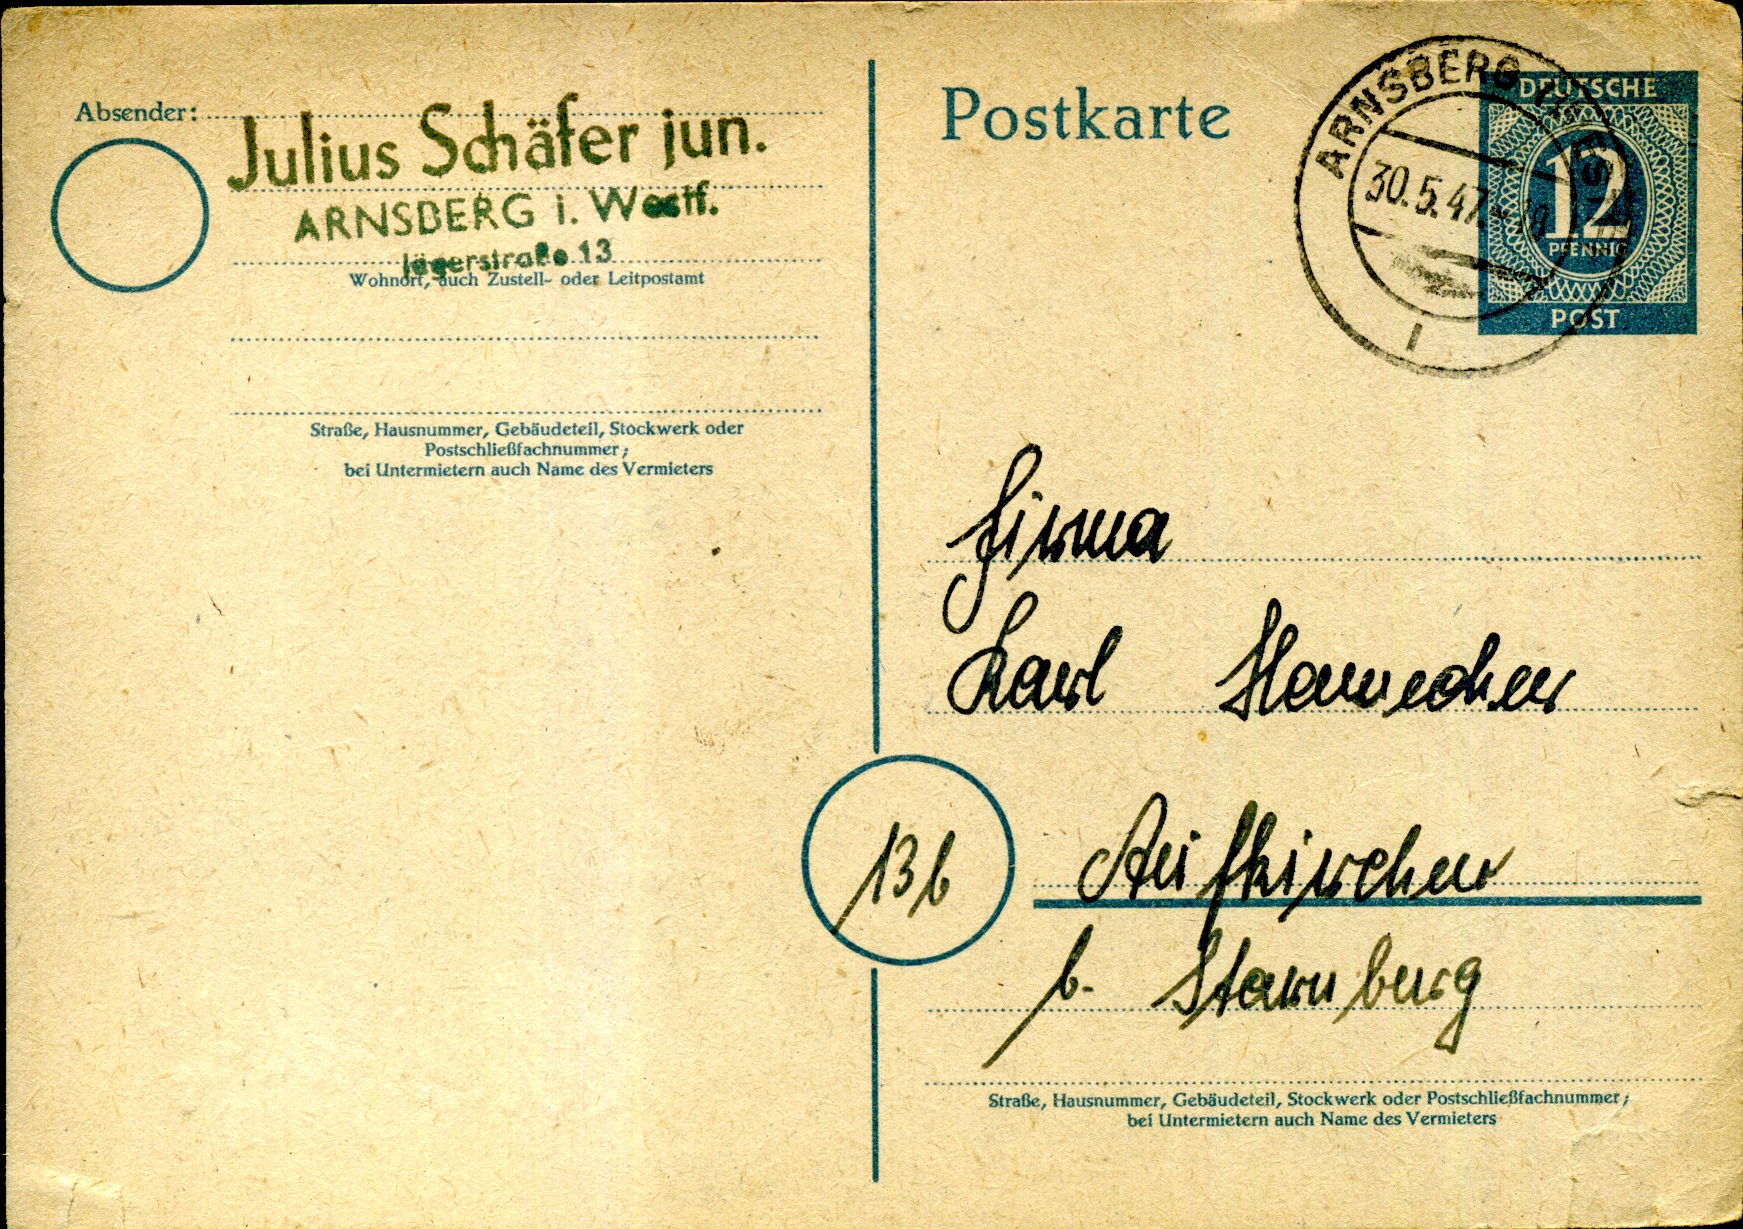 Absender:
Julius Schäfer jun.
ARNSBERG i. Westf.
Jägerstraße 13
Wohnort, auch Zustell- oder Leitpostamt
Straße, Hausnummer, Gebäudeteil, Stockwerk oder
Postschließfachnummer;
bei Untermietern auch Name des Vermieters
Postkarte
ARNSBERG
30.5.47
1
DEUTSCHE
12
PFENNIG
POST
Firma
Karl
13b
Aufkirchen
b. Starnberg
Straße, Hausnummer, Gebäudeteil, Stockwerk oder Postschließfachnummer;
bei Untermietern auch Name des Vermieters